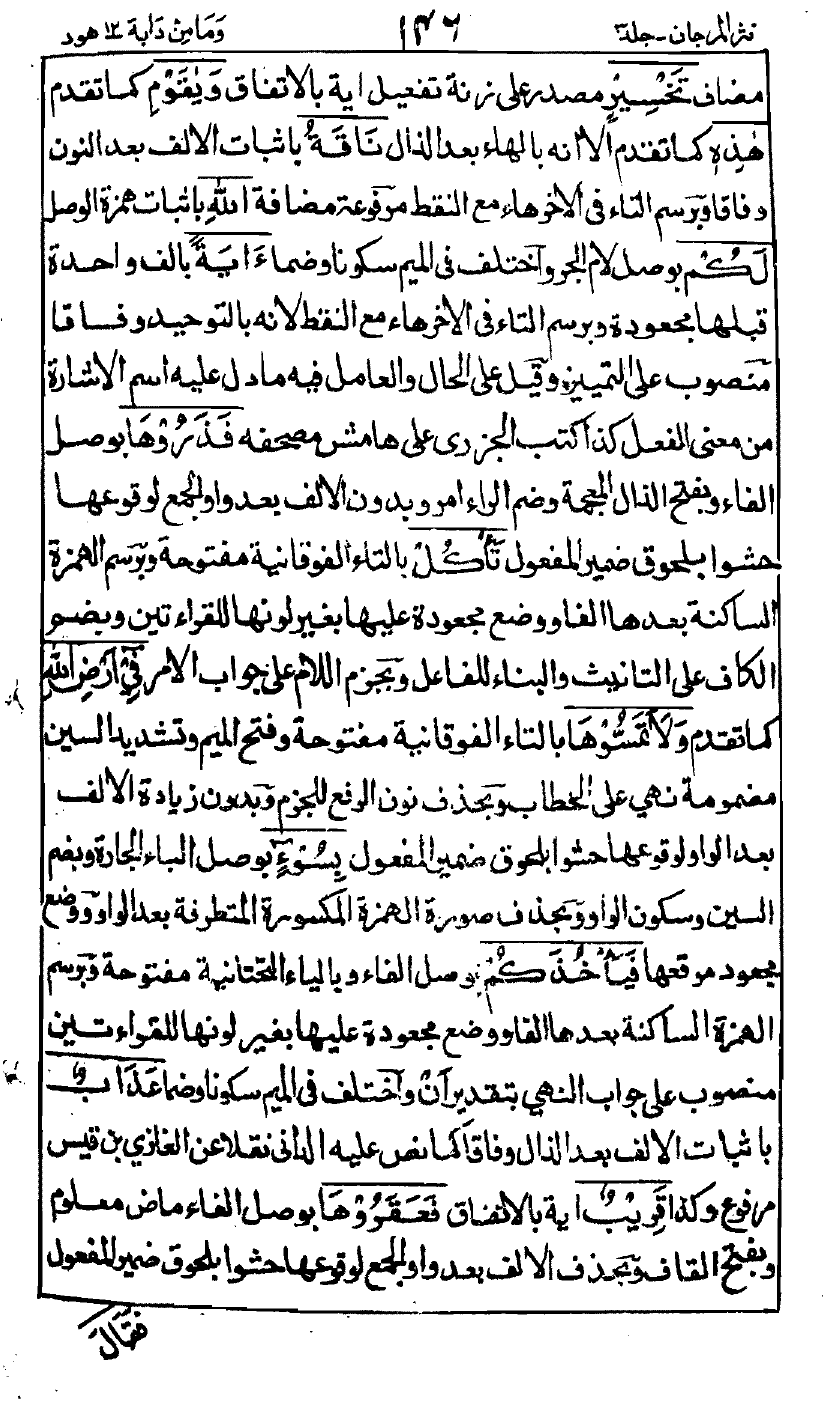 نثر المرجان - جلد٣ ١٤٦ وَمَا مِنْ دَابة ١٢ هود
مضاف تَخْسِيْرٍ مصدر على زنة تفعيل اية بالاتفاق وَيٰقَوْمِ كما تقدم
هٰذِهٖ كما تقدم الا انه بالهاء بعد الذال نَاقَةُ باثبات الالف بعد النون
وفاقا وبرسم التاء فى الاخر هاء مع النقط مرفوعة مضافة اللّٰهِ باثبات همزة الوصل
لَكُمْ بوصل لام الجر واختلف فى الميم سكونا وضما ءَايَةً بالف واحدة
قبلها مجعودة وبرسم التاء فى الاخر هاء مع النقط لانه بالتوحيد وفاقا
منصوب على التمييز وقيل على الحال والعامل فيه ما دل عليه اسم الاشارة
من معنى الفعل كذا كتب الجزرى على هامش مصحفه فَذَرُوْهَا بوصل
الفاء وبفتح الذال المعجمة وضم الراء امر وبدون الالف بعد واو الجمع لوقوعها
حشوا بلحوق ضمير المفعول تَأْكُلْ بالتاء الفوقانية مفتوحة وبرسم الهمزة
الساكنة بعدها الفا ووضع مجعودة عليها بغير لونها للقراءتين وبضم
الكاف على التانيث والبناء للفاعل وبجزم اللام على جواب الامر فِيْٓ اَرْضِ اللّٰهِ
كما تقدم وَلَا تَمَسُّوْهَا بالتاء الفوقانية مفتوحة وفتح الميم وتشديد السين
مضمومة نهي على الخطاب وبحذف نون الرفع للجزم وبدون زيادة الالف
بعد الواو لوقوعها حشوا بلحوق ضمير المفعول بِسُوْٓءٍ بوصل الباء الجارة وبضم
السين وسكون الواو وبحذف صورة الهمزة المكسورة المتطرفة بعد الواو ووضع
مجعود موقعها فَيَأْخُذَكُمْ بوصل الفاء وبالياء التحتانية مفتوحة وبرسم
الهمزة الساكنة بعدها الفا ووضع مجعودة عليها بغير لونها للقراءتين
منصوب على جواب النهي بتقدير اَنْ واختلف فى الميم سكونا وضما عَذَابٌ
باثبات الالف بعد الذال وفاقا كما نص عليه الدانى نقلا عن الغازي بن قيس
مرفوع وكذا قَرِيْبٌ اية بالاتفاق فَعَقَرُوْهَا بوصل الفاء ماض معلوم
وبفتح القاف وبحذف الالف بعد واو الجمع لوقوعها حشوا بلحوق ضمير المفعول
فَقَالَ